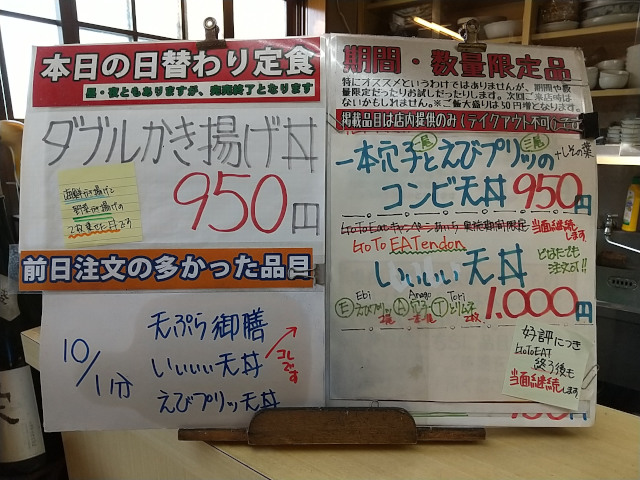 本日の日替わり定食
昼・夜ともありますが、完売終了となります
ダブルかき揚げ丼
海鮮かき揚げと
野菜かき揚げの
2枚乗せた丼です
950円
前日注文の多かった品目
10/1分
天ぷら御膳
いいいい天丼
えびプリッ天丼
コレです
期間・数量限定品
特にオススメというわけではありませんが、期間や数
量限定だったりお試しだったりします。次回ご来店時は
ないかもしれません。※ご飯大盛りは50円増となります。
掲載品目は店内提供のみ(テイクアウト不可)です
一本穴子とえびプリッの
一尾
三尾
+しその葉
コンビ天丼 950円
GoToEatキャンペーン
当面継続します。
GoTo EATendon
いいいい天丼
どなたでも
注文可!!
Ebi
Anago
Tori
1.000円
好評につき
GoToEAT
終了後も
当面継続します。